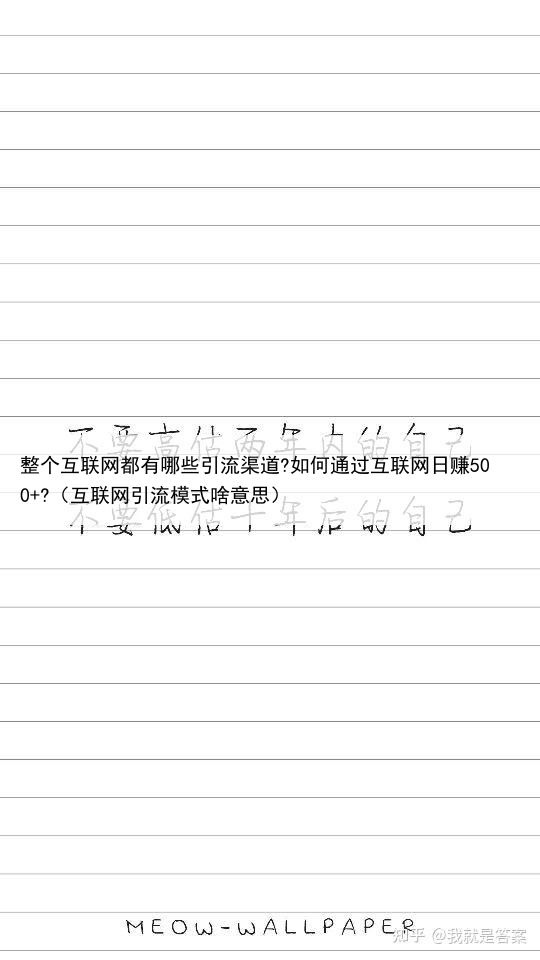 不要高估两年内的自己
整个互联网都有哪些引流渠道?如何通过互联网日赚50
0+?（互联网引流模式啥意思）
不要低估十年后的自己
MEOW-WALLPAPER
知乎 @我就是答案